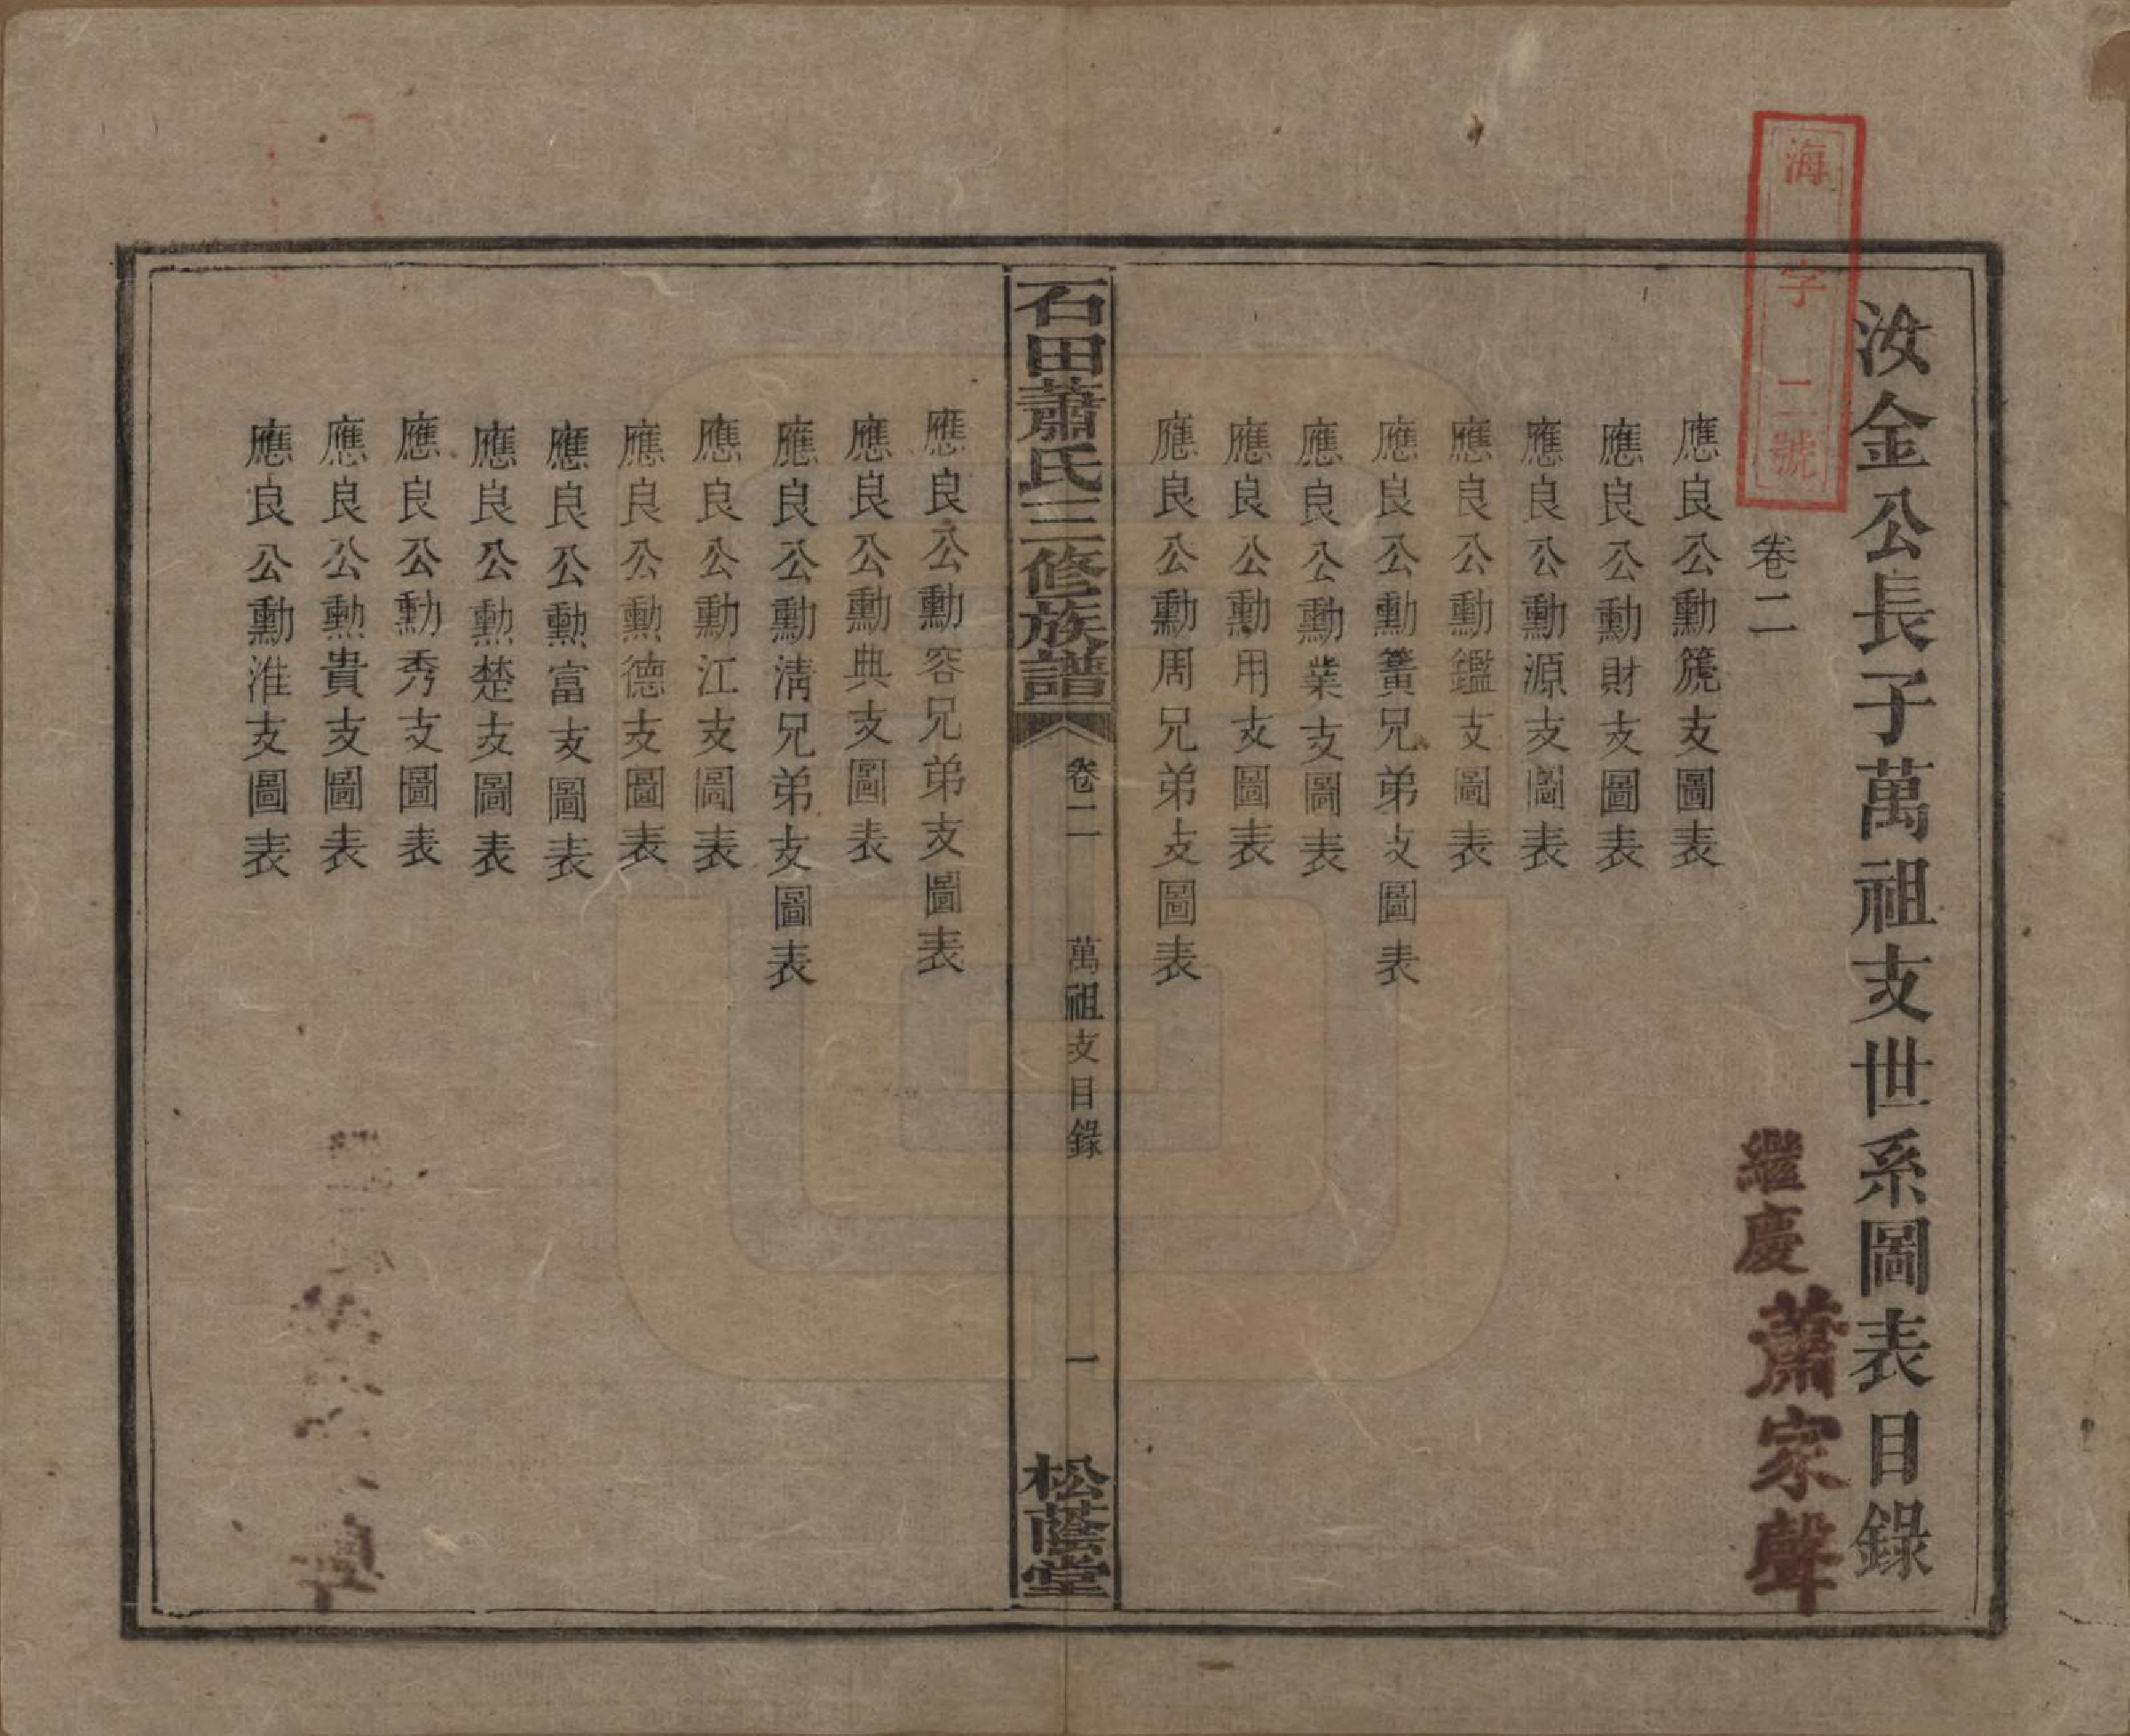 汝金公長子萬祖支世系圖表目錄
海字二號
卷二
繼慶
蕭家聲
應良公勳籠支圖表
應良公勳財支圖表
應良公勳源支圖表
應良公勳鑑支圖表
應良公勳簧兄弟支圖表
應良公勳業支圖表
應良公勳用支圖表
應良公勳周兄弟支圖表
石田蕭氏三修族譜
卷二
萬祖支目錄
一
松蔭堂
應良公勳容兄弟支圖表
應良公勳典支圖表
應良公勳清兄弟支圖表
應良公勳江支圖表
應良公勳德支圖表
應良公勳富支圖表
應良公勳楚支圖表
應良公勳秀支圖表
應良公勳貴支圖表
應良公勳淮支圖表